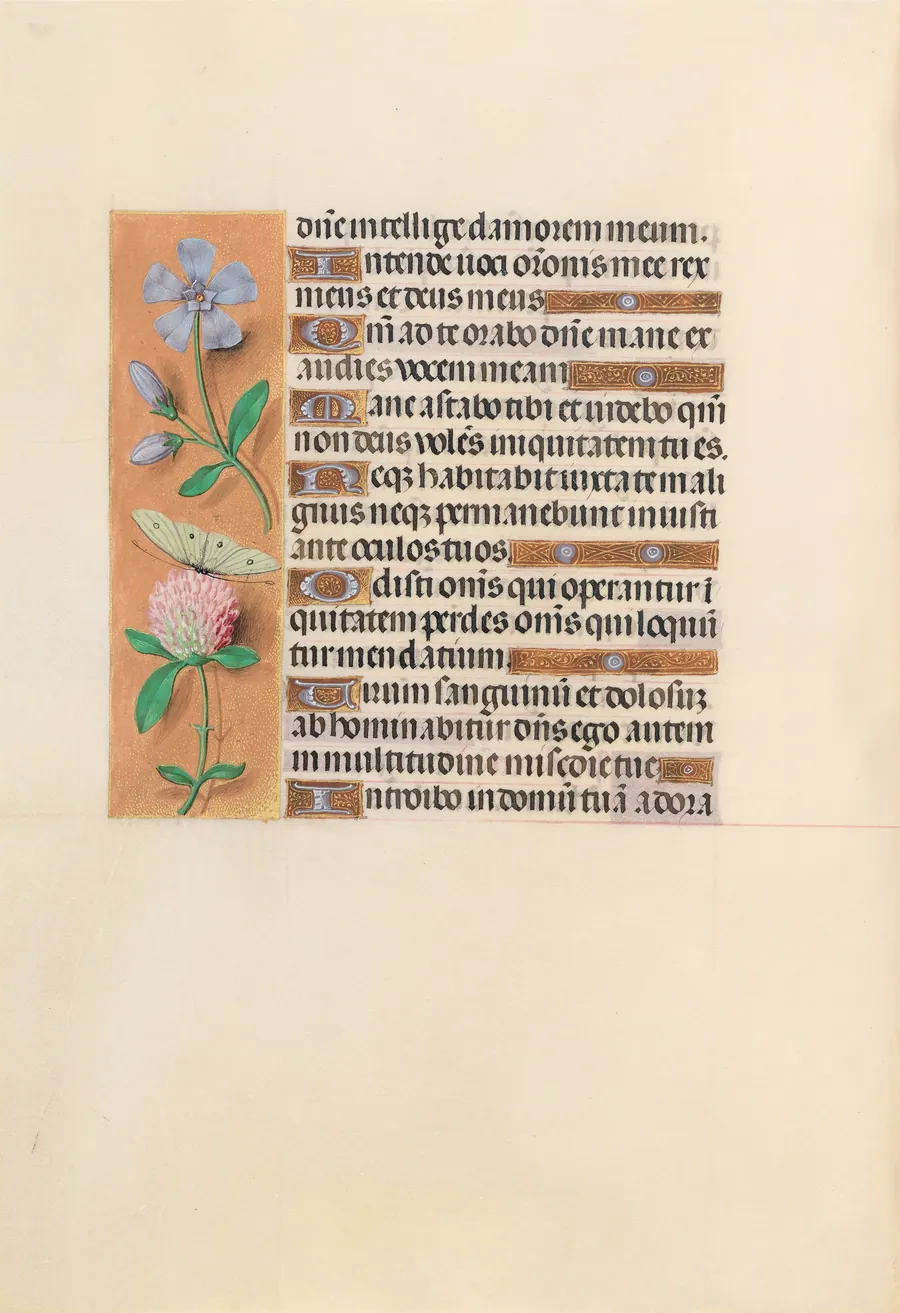 dn̄e intellige clamorem meum.
Intende uoci or̄onis mee rex
meus et deus meus
Qm̄ ad te orabo dn̄e mane ex
audies vocem meam
Mane astabo tibi et uidebo qm̄
non deus volēs iniquitatem tu es.
Neqꝫ habitabit iuxta te mali
gnus neqꝫ permanebunt iniusti
ante oculos tuos
Odisti om̄s qui operantur ī
quitatem perdes om̄s qui loquū
tur mendatium
Uirum sanguinū et dolosuꝫ
abhominabitur dn̄s ego autem
in multitudine mis̄cdie tue
Introibo in domū tuā adora